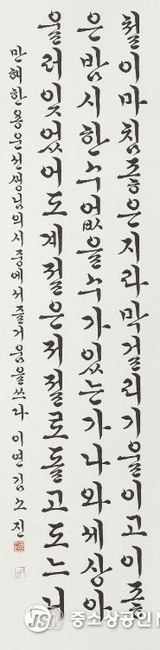 철이마침좋은지라막걸리기울이고이좋
은밤시한수없을수가있는가나와세상아
울러잊었어도계절은저절로돌고도느니
만해한용운선생님의시중에서즐거움을쓰다 이연김소진
중소상공인